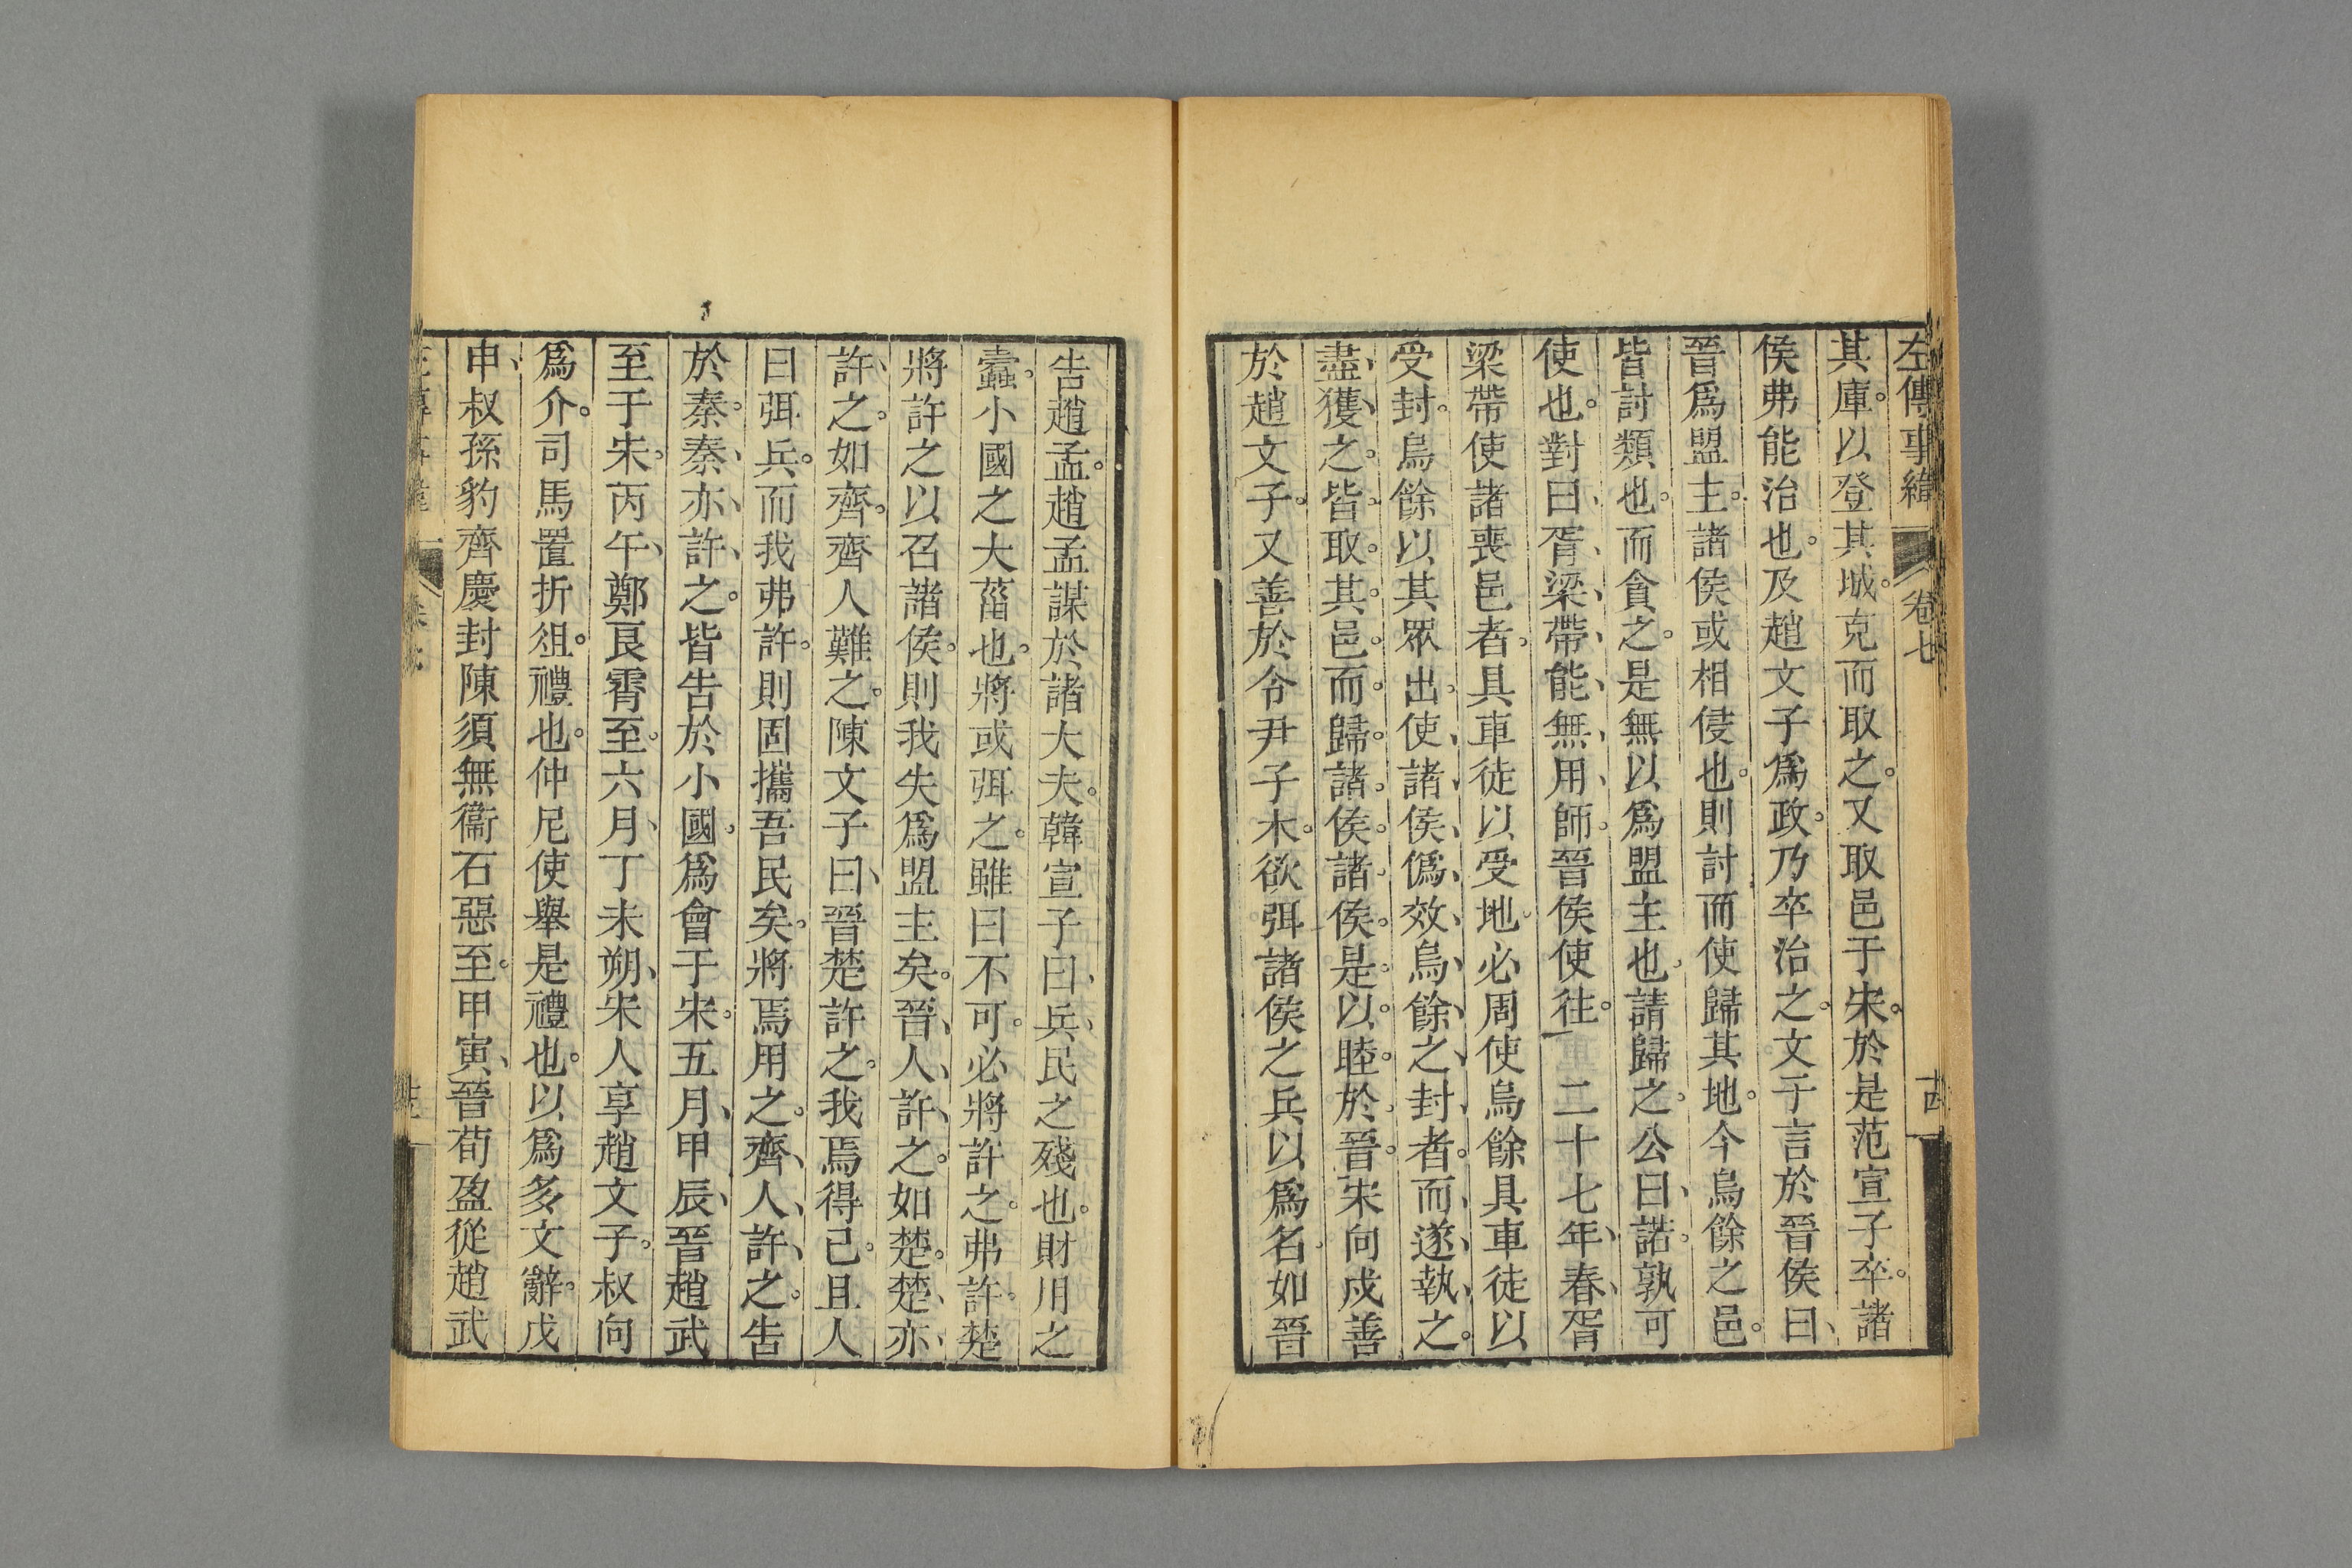 左傳事緯 卷七 十四
其庫。以登其城。克而取之。又取邑于宋。於是范宣子卒。諸
侯弗能治也。及趙文子爲政。乃卒治之。文子言於晉侯曰、
晉爲盟主。諸侯或相侵也。則討而使歸其地。今烏餘之邑。
皆討類也。而貪之。是無以爲盟主也。請歸之。公曰、諾。孰可
使也。對曰、胥、梁、帶、能、無、用、師。晉侯使往。 二十七年、春、胥
梁帶使諸喪邑者。具車徒以受地。必周使烏餘具車徒以
受封。烏餘以其眾出。使、諸、侯、僞、效、烏、餘、之、封、者。而、遂、執、之。
盡、獲、之。皆。取。其。邑。而。歸。諸。侯。諸。侯。是。以。睦。於。晉。宋向戌善
於趙文子。又善於令尹子木。欲弭諸侯之兵以爲名。如晉
告趙孟。趙孟謀於諸大夫。韓宣子曰、兵、民之殘也。財用之
蠹。小國之大菑也。將或弭之。雖曰不可。必將許之。弗許。楚
將許之以召諸侯。則我失爲盟主矣。晉、人、許、之。如楚。楚、亦、
許、之。如齊。齊人難之。陳文子曰、晉楚許之。我焉得已。且人
曰弭兵。而我弗許。則固攜吾民矣。將焉用之。齊、人、許、之。告
於秦。秦、亦、許、之。皆告於小國。爲會于宋。五月、甲辰、晉趙武
至于宋。丙午、鄭良霄至。六月、丁未朔、宋人享趙文子。叔向
爲介。司馬置折俎。禮也。仲尼使舉是禮也。以爲多文辭。戊
申、叔孫豹齊慶封陳須無衞石惡至。甲寅、晉荀盈從趙武